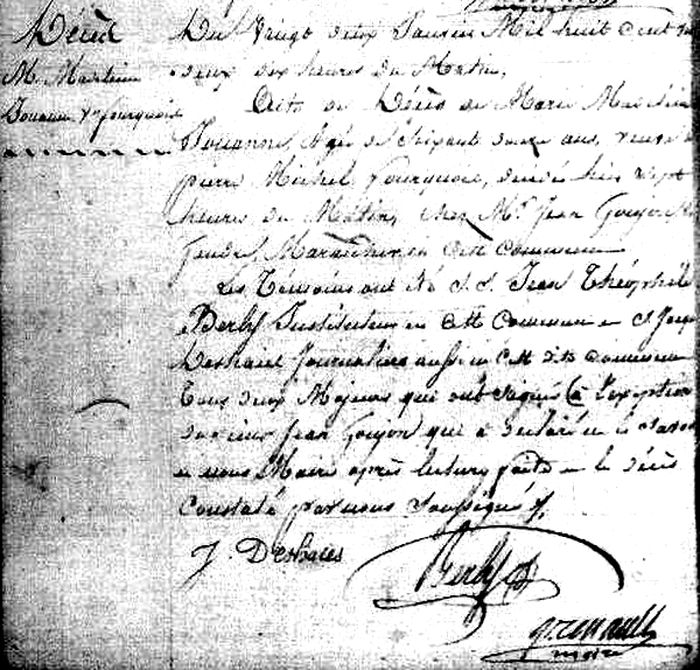 Décès
M. Madeleine
Jouanne Ve fourquoie
Du Vingt deux Janvier Mil huit Cent
deux dix heures du Matin,
Acte de Décès de Marie Madeleine
Jouanne, Agée de soixante douze ans, veuve de
pierre Michel fourquoie, décédée hier sept
heures du Matin, chez Mr. Jean Goujon
Gendre, Maraicher en cette Commune
Les Témoins ont été S.S. Jean Théophile
Berly Instituteur en cette Commune et
Deshaies Journalier aussi en cette dite Commune
tous deux Majeurs qui ont signés (à l'exception
du sieur Jean Goujon qui a déclaré ne le savoir
et nous Maire après lecture faite et le décès
Constaté par nous Soussigné
J. Deshaies
Berly
renault
maire